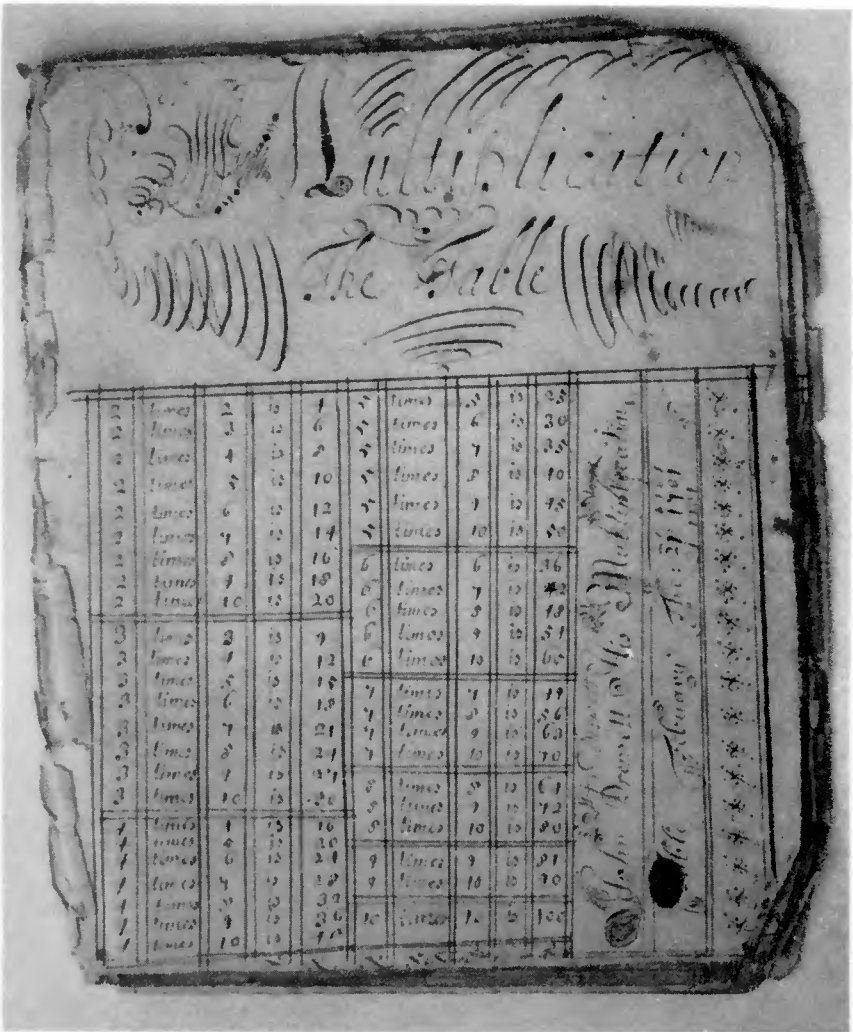 Multiplication
The Table
2 times 2 is 4
2 times 3 is 6
2 times 4 is 8
2 times 5 is 10
2 times 6 is 12
2 times 7 is 14
2 times 8 is 16
2 times 9 is 18
2 times 10 is 20
3 times 3 is 9
3 times 4 is 12
3 times 5 is 15
3 times 6 is 18
3 times 7 is 21
3 times 8 is 24
3 times 9 is 27
3 times 10 is 30
4 times 4 is 16
4 times 5 is 20
4 times 6 is 24
4 times 7 is 28
4 times 8 is 32
4 times 9 is 36
4 times 10 is 40
5 times 5 is 25
5 times 6 is 30
5 times 7 is 35
5 times 8 is 40
5 times 9 is 45
5 times 10 is 50
6 times 6 is 36
6 times 7 is 42
6 times 8 is 48
6 times 9 is 54
6 times 10 is 60
7 times 7 is 49
7 times 8 is 56
7 times 9 is 63
7 times 10 is 70
8 times 8 is 64
8 times 9 is 72
8 times 10 is 80
9 times 9 is 81
9 times 10 is 90
10 times 10 is 100
John
Table February The 21